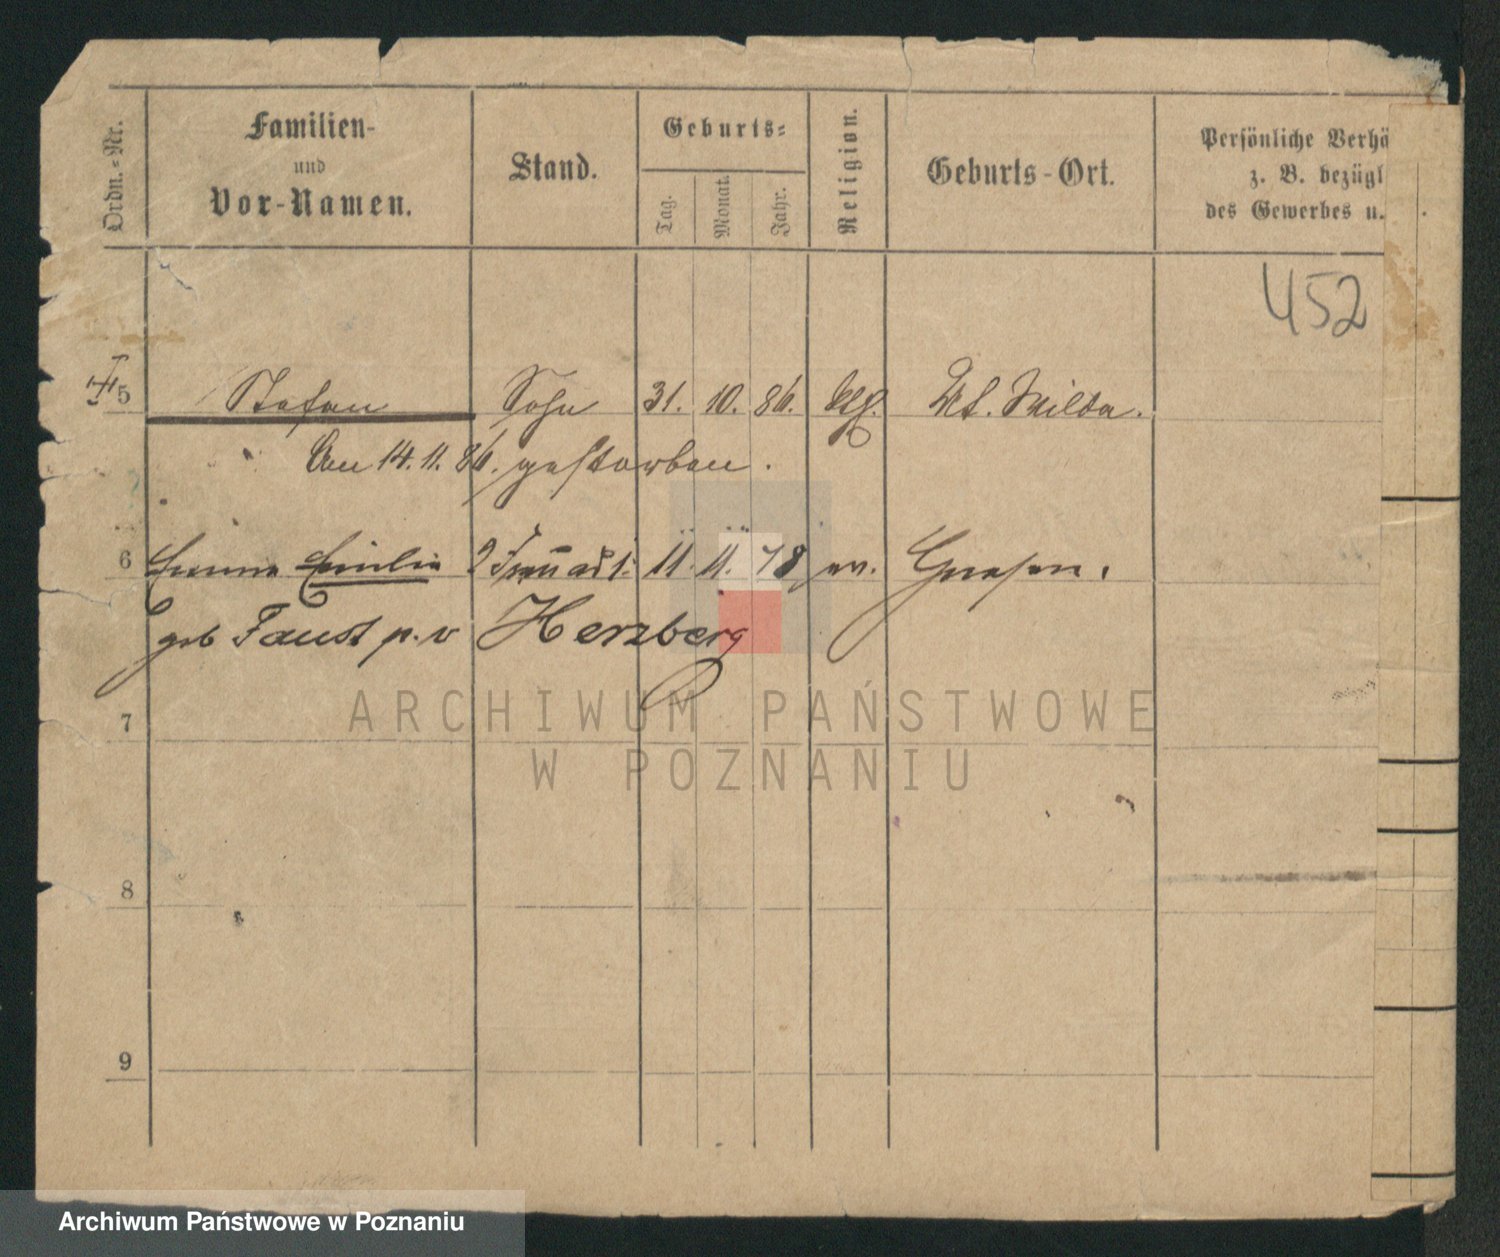 Ordn.-Nr.
Familien-
und
Vor-Namen.
Stand.
Geburts-
Tag.
Monat.
Jahr.
Religion.
Geburts-Ort.
Persönliche Verhä
z. B. bezügl
des Gewerbes u.
452
5 Stefan Sohn 31. 10. 86. kath. Wilda.
Am 14. 11. 86. gestorben.
6 Emma Emilie 2 Frau 11. 11. 78 ev. Gnesen.
geb Faust p. v Herzberg
7
8
9
ARCHIWUM PAŃSTWOWE
W POZNANIU
Archiwum Państwowe w Poznaniu